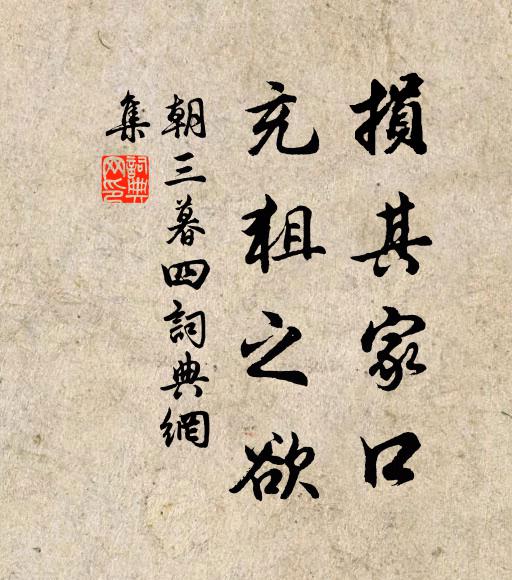 損其家口
充狙之欲
朝三暮四詞典網
集
詞典
网印